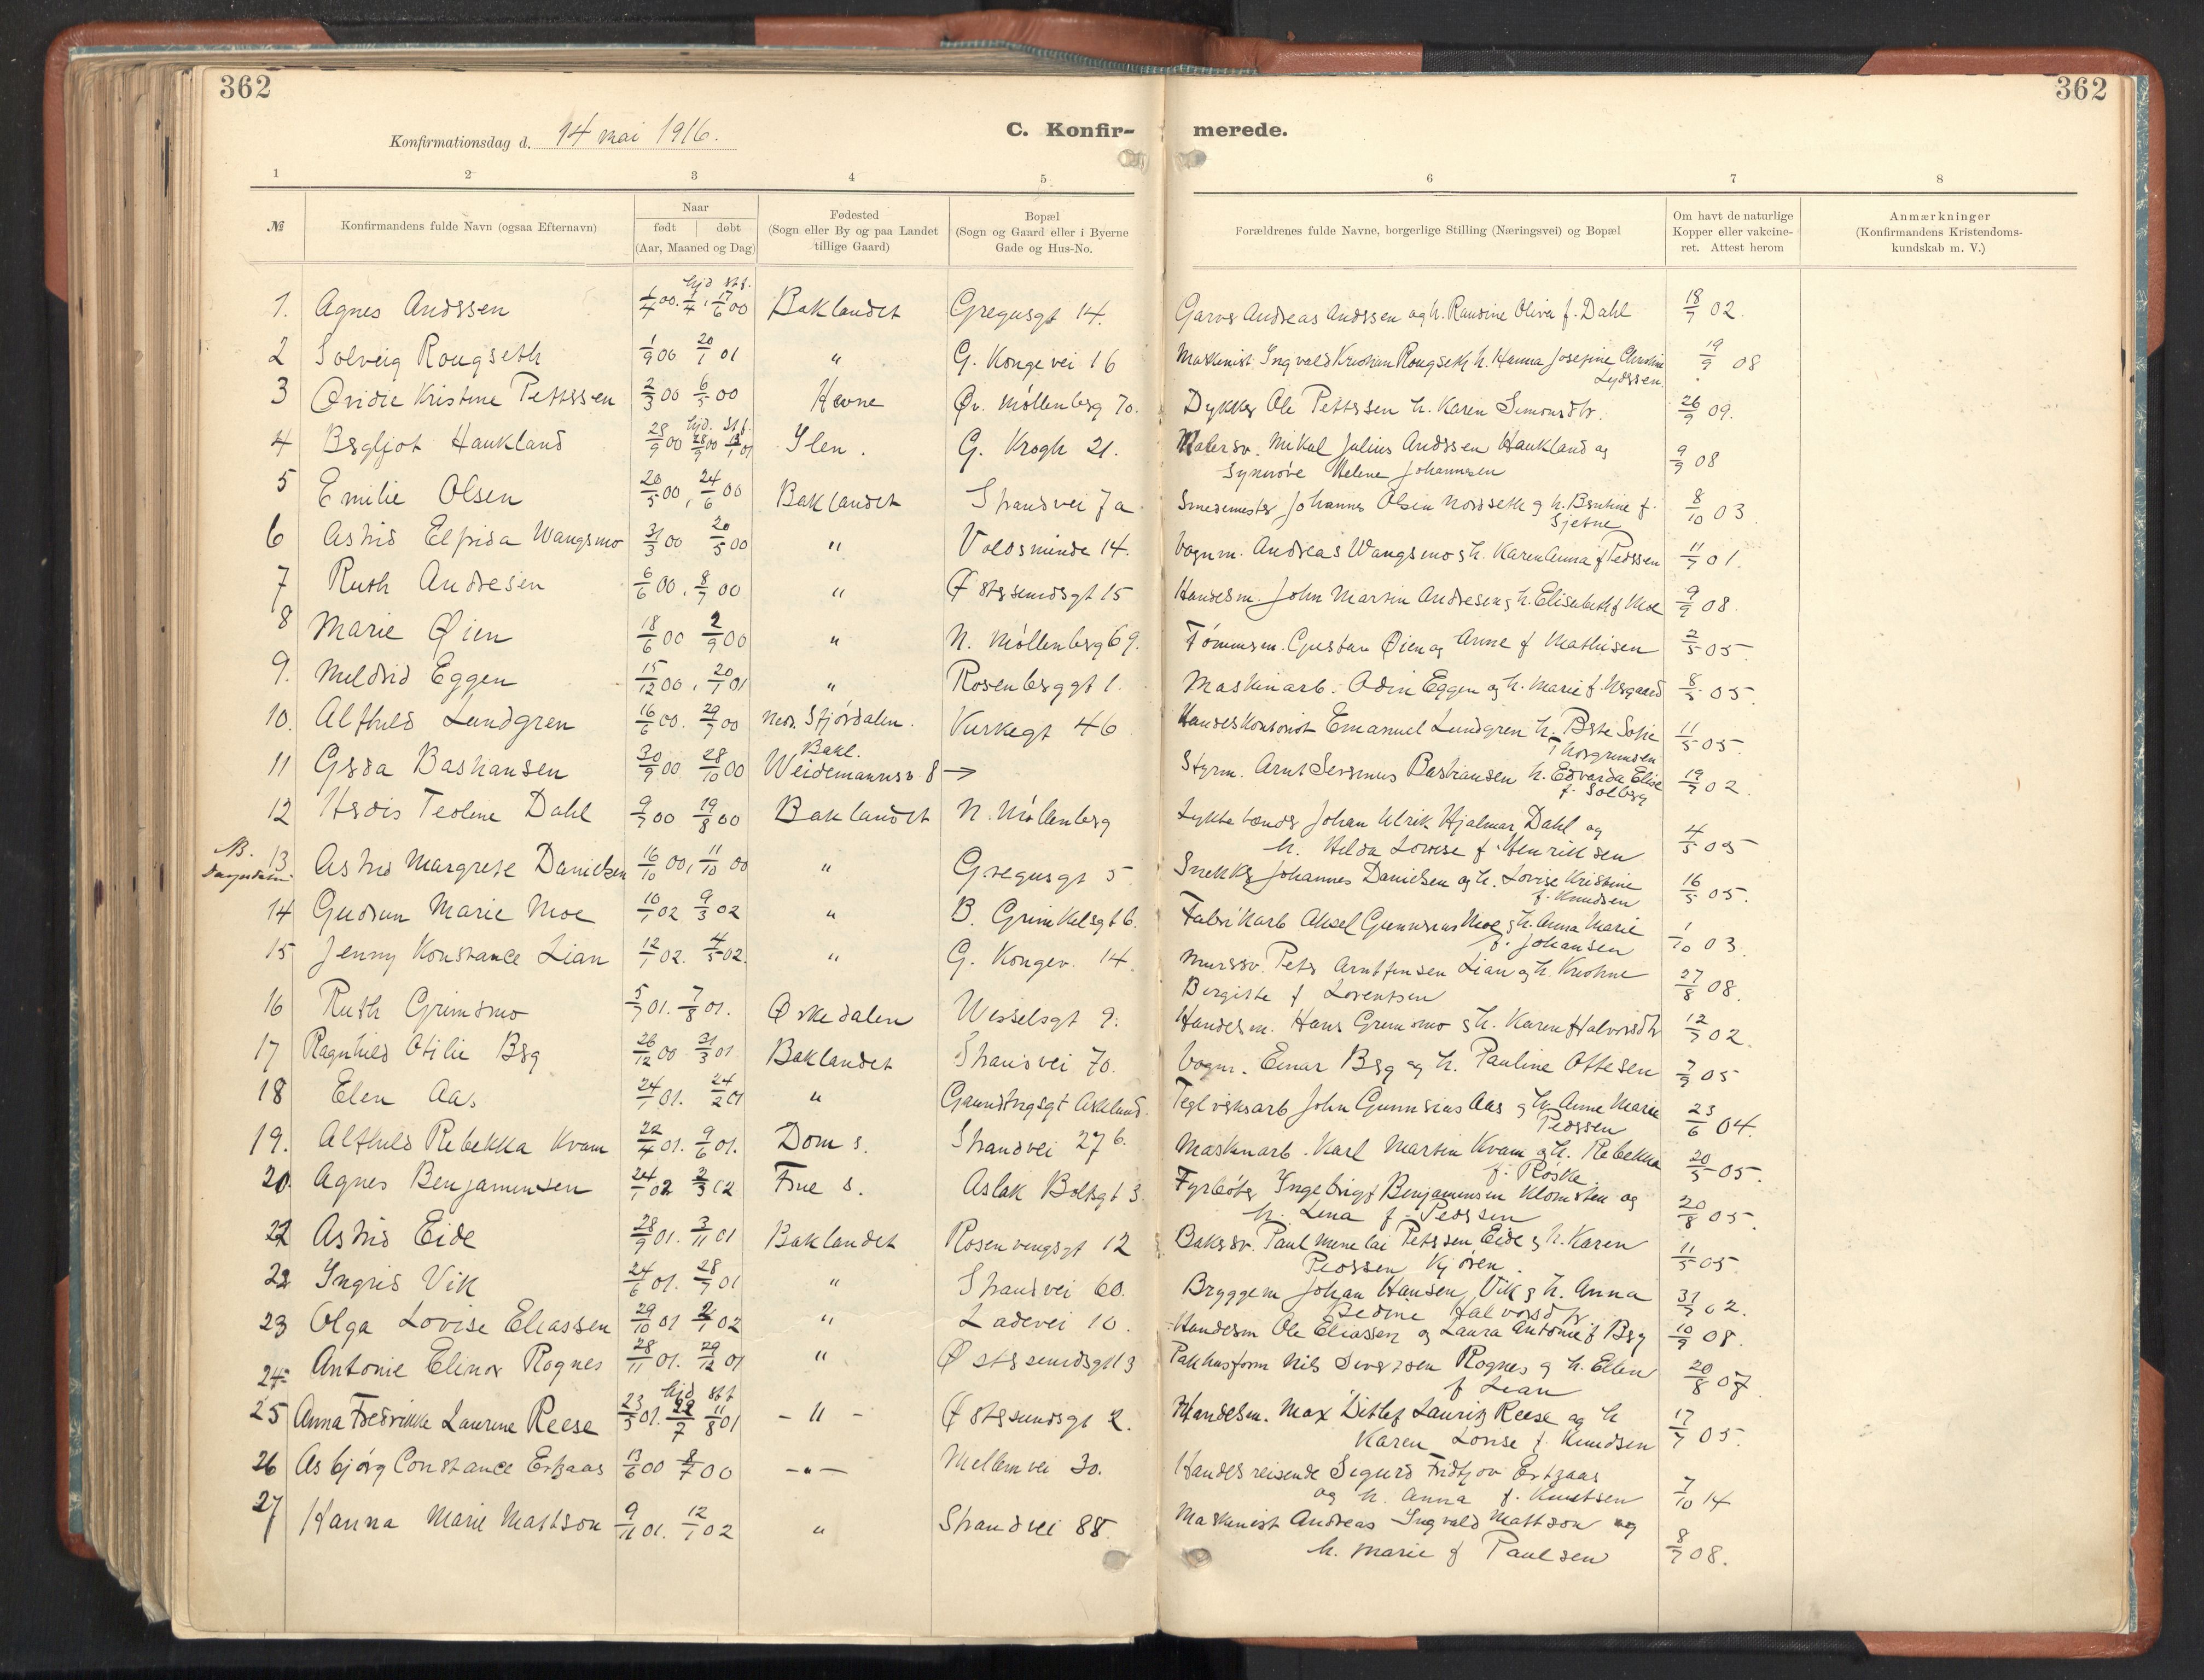 362
362
Konfirmationsdag d. 14 mai 1916.
C. Konfir-
merede.
1 2 3 4 5 6 7 8
№
Konfirmandens fulde Navn (ogsaa Efternavn)
Naar
født | døbt
(Aar, Maaned og Dag)
Fødested
(Sogn eller By og paa Landet
tillige Gaard)
Bopæl
(Sogn og Gaard eller i Byerne
Gade og Hus-No.
Forældrenes fulde Navne, borgerlige Stilling (Næringsvei) og Bopæl
Om havt de naturlige
Kopper eller vakcine-
ret. Attest herom
Anmærkninger
(Konfirmandens Kristendoms-
kundskab m. V.)
hjd. st f.
1. Agnes Anderssen 1/4 00. 1/4, 17/6 00 Baklandet Gregusgt 14. Garver Andreas Anderssen og h. Randine Oliva f. Dahl 18/7 02.
2 Solveig Rougseth 1/9 00 20/1 01 " G. Kongevei 16 Maskinist Ingvald Kristian Rougseth h. Hanna Josefine Christine 19/9 08
Lyderssen.
3 Ovidie Kristine Petterssen 2/3 00 6/5 00 Hevne Øv. Møllenberg 70. Dykker Ole Petterssen h. Karen Simonsdtr. 26/9 09.
hjd. st f.
4 Bergljot Haukland 28/9 00 28/9 00 13/1 01 Ilen. G. Krogh 21. Malersv. Mikal Julius Anderssen Haukland og 9/9 08
Synnøve Helene Johannesen
5 Emilie Olsen 20/5 00, 24/6 00 Baklandet Strandvei 7a Smedemester Johannes Olsen Nordseth og h. Berntine f. 8/10 03
Sjetne
6 Astrid Elfrida Wangsmo 31/3 00 20/5 00 " Voldsminde 14. Vognm. Andreas Wangsmo og h. Karen Anna f Pederssen 11/7 01.
7 Ruth Andresen 6/6 00. 8/7 00 " Østersundsgt 15 Handelsm. John Martin Andresen og h. Elisabeth f Moe 9/9 08.
8 Marie Øien 18/6 00 2/9 00 " N. Møllenberg 69. Tømmerm. Gustav Øien og Anne f Mathisen 2/5 05.
9. Meldrid Eggen 15/12 00, 20/1 01 " Rosenberggt 1. Maskinarb. Odin Eggen og h. Marie f. 8/5 05.
10. Alfhild Lundgren 16/6 00. 29/7 00 Ned. Stjørdalen. Verksgt 46 Handelskontorist Emanuel Lundgren h. Berte Sofie 11/5 05.
Thorgrimsen
Bakl.
11 Gerda Bastiansen 30/9 00 28/10 00 Weidemannsv 8 → Styrm. Arnt Severinus Bastiansen h. Edvarda Elise 19/7 02.
f. Solberg
12 Herdis Teoline Dahl 9/7 00 19/8 00 Baklandet N. Møllenberg Lyktetænder Johan Ulrik Hjalmar Dahl og 4/5 05
h. Hilda Lovise f Henriksen
13 Astrid Margrete Danielsen 16/10 00, 11/10 00 " Gregusgt 5 Snekker Johannes Danielsen og h. Lovise Kristine 16/5 05.
f. Knudsen
14 Gudrun Marie Moe 10/1 02 9/3 02 " B. Grimkelsgt 6. Fabrikarb Aksel Gunnerius Moe og h. Anna Marie 1/10 03.
f. Johansen
15 Jenny Konstance Lian 12/1 02. 4/5 02. " G. Kongev. 14. Murersv. Peter Arnt Jensen Lian og h. Kristine 27/8 08.
Birgitte f Lorentsen
16 Ruth Grimsmo 5/7 01. 7/8 01. Orkedalen Wesselsgt 9. Handelsm. Hans Grimsmo og h. Karen Halvorsdtr 12/7 02.
17 Ragnhild Otilie Berg 26/12 00 31/3 01 Baklandet Strandvei 70. Vognm. Einar Berg og h. Pauline Ottesen 7/9 05
18 Elen Aas 24/1 01. 24/2 01 " Asklund. Teglverksarb John Gunnerius Aas og h. Anne Marie 23/6 04.
Pederssen
19. Alfhild Rebekka Kvam 22/4 01. 9/6 01. Dom s. Strandvei 27 b. Maskinarb. Karl Martin Kvam og h. Rebekka 20/5 05.
f. Røske.
20. Agnes Benjaminsen 24/1 02 2/3 02 Frue s. Aslak Boltsgt 3. Fyrbøter Ingebrigt Benjaminsen Klomsten og 20/8 05.
h. Lena f. Pederssen
22 Astrid Eide 28/9 01. 3/11 01 Baklandet Rosenvengsgt 12 Bakersv. Paul Menelai Peterssen Eide og h. Karen 11/5 05.
Pederssen Kjøren.
22 Ingrid Vik 24/6 01. 28/7 01 " Strandvei 60. Bryggem Johan Hansen Vik og h. Anna 31/7 02.
Bedine Halvorsdtr.
23 Olga Lovise Eliassen 29/10 01 2/1 02 " Ladevei 10. Handelsm Ole Eliassen og Laura Antonie f Berg 10/9 08.
24 Antonie Elinor Rognes 28/11 01. 29/12 01 " Østersundsgt 13 Pakhusform Nils Iverssen Rognes og h. Ellen 20/8 07.
f Lian
hjd st f
25 Anna Fredrikke Laurine Reese 23/5 01. 22/7 11/8 01 - " - Østersundsgt 2. Handelsm. Max Ditlef Lauritz Reese og h 17/7 05.
Karen Lovise f. Knudsen
26 Asbjørg Constance Ertzaas 13/6 00 8/7 00 - " - Mellemvei 30. Handelsreisende Sigurd Fridtjov Ertzaas 7/10 14
og h. Anna f. Knutsen
27 Hanna Marie Mattson 9/11 01. 12/1 02 " Strandvei 88. Maskinist Andreas Ingvald Mattson og 8/7 08.
h. Marie f Paulsen